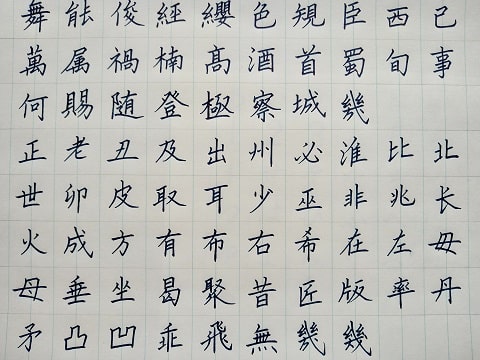 舞能俊經纓色規臣西己
萬属禍楠高酒首蜀旬事
何賜随登極察城幾
正老丑及出州必淮比北
世卯皮取耳少巫非兆长
火成方有布右希在左毋
母垂坐曷聚昔匠版率丹
矛凸凹乖飛無幾幾